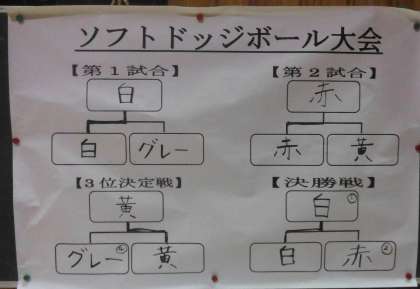 ソフトドッジボール大会
【第1試合】
白
白 グレー
【第2試合】
赤
赤 黄
【3位決定戦】
黄
グレー④ 黄
【決勝戦】
白①
白 赤②